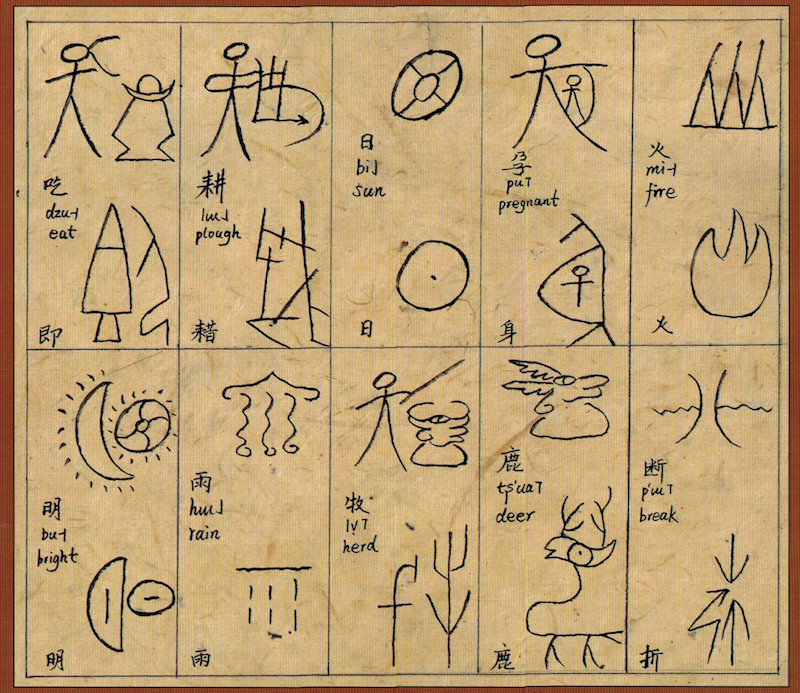 吃
dzɯ˧
eat
即
耕
lɯ˩
plough
耤
日
bi˩
sun
日
孕
pu˥
pregnant
身
火
mi˧
fire
火
明
bu˧
bright
明
雨
hɯ˩
rain
雨
牧
lv̩˥
herd
鹿
tʂ'ua˥
deer
鹿
断
p'ɯ˥
break
折